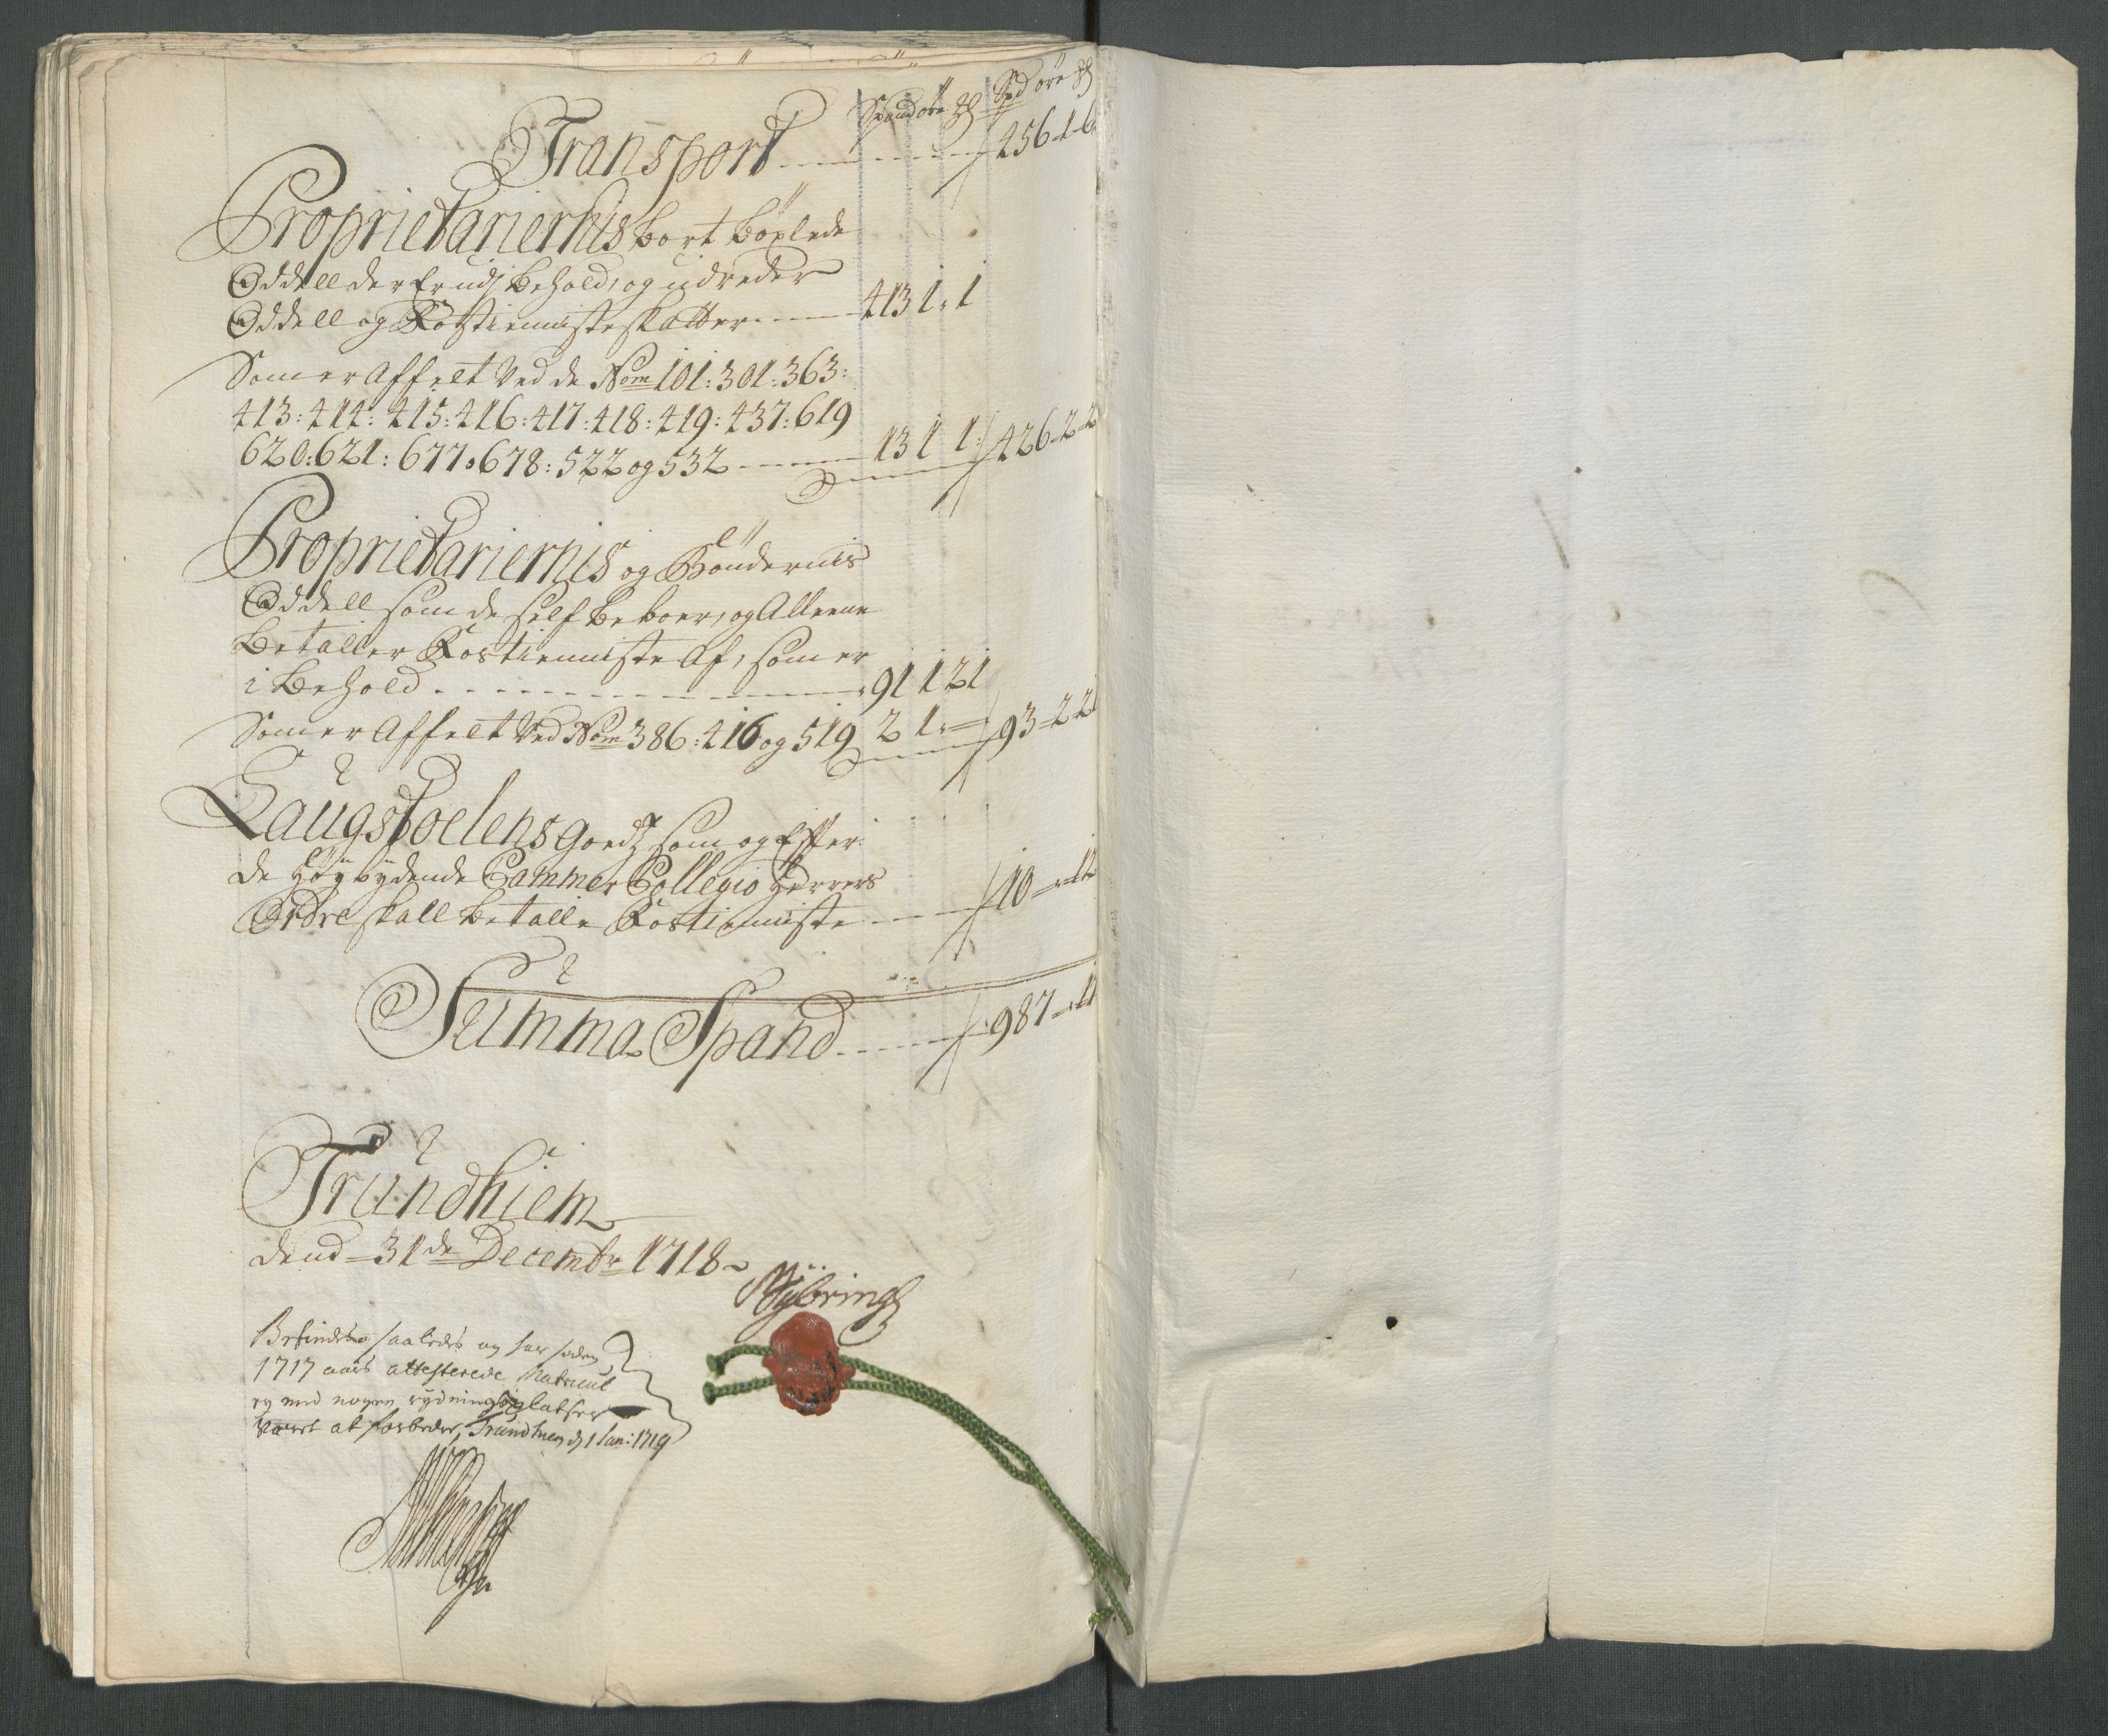 Spand öre ₰ Spd öre ₰
Transport 456-1-6
Proprietariernis bort böxlede
Oddell der Er udj Behold, og udreder
Oddell og Rostienniste skatter 413 1: 1
Som er Affelt Ved de Nom 101: 301: 363:
413: 414: 415: 416: 417: 418: 419: 437: 619
620: 621: 677: 678: 522 og 532 13 1 1: 426-2-2
Proprietariernis og Böndernis
Oddell som de self Beboer, og Alleene
Betaller Rostienniste Af, som er
i Behold 91 1 21
Som er Affelt Ved Nom 386: 416 og 519 2 1 93-2-21
Laugstoelens goedz som og Effter
de Höÿbydende Cammer Collegio Herrers
Ordre skall Betalle Rostienniste 10
Summa Spand 987
Trundhiem
dend 31de Decembr 1718
Nÿbring
Befindes saaledes og har siden
1717 aars attesterede Matricul
ey med nogen rydningspladser
været at forbedre, Trundhiem dj 1 Jan: 1719